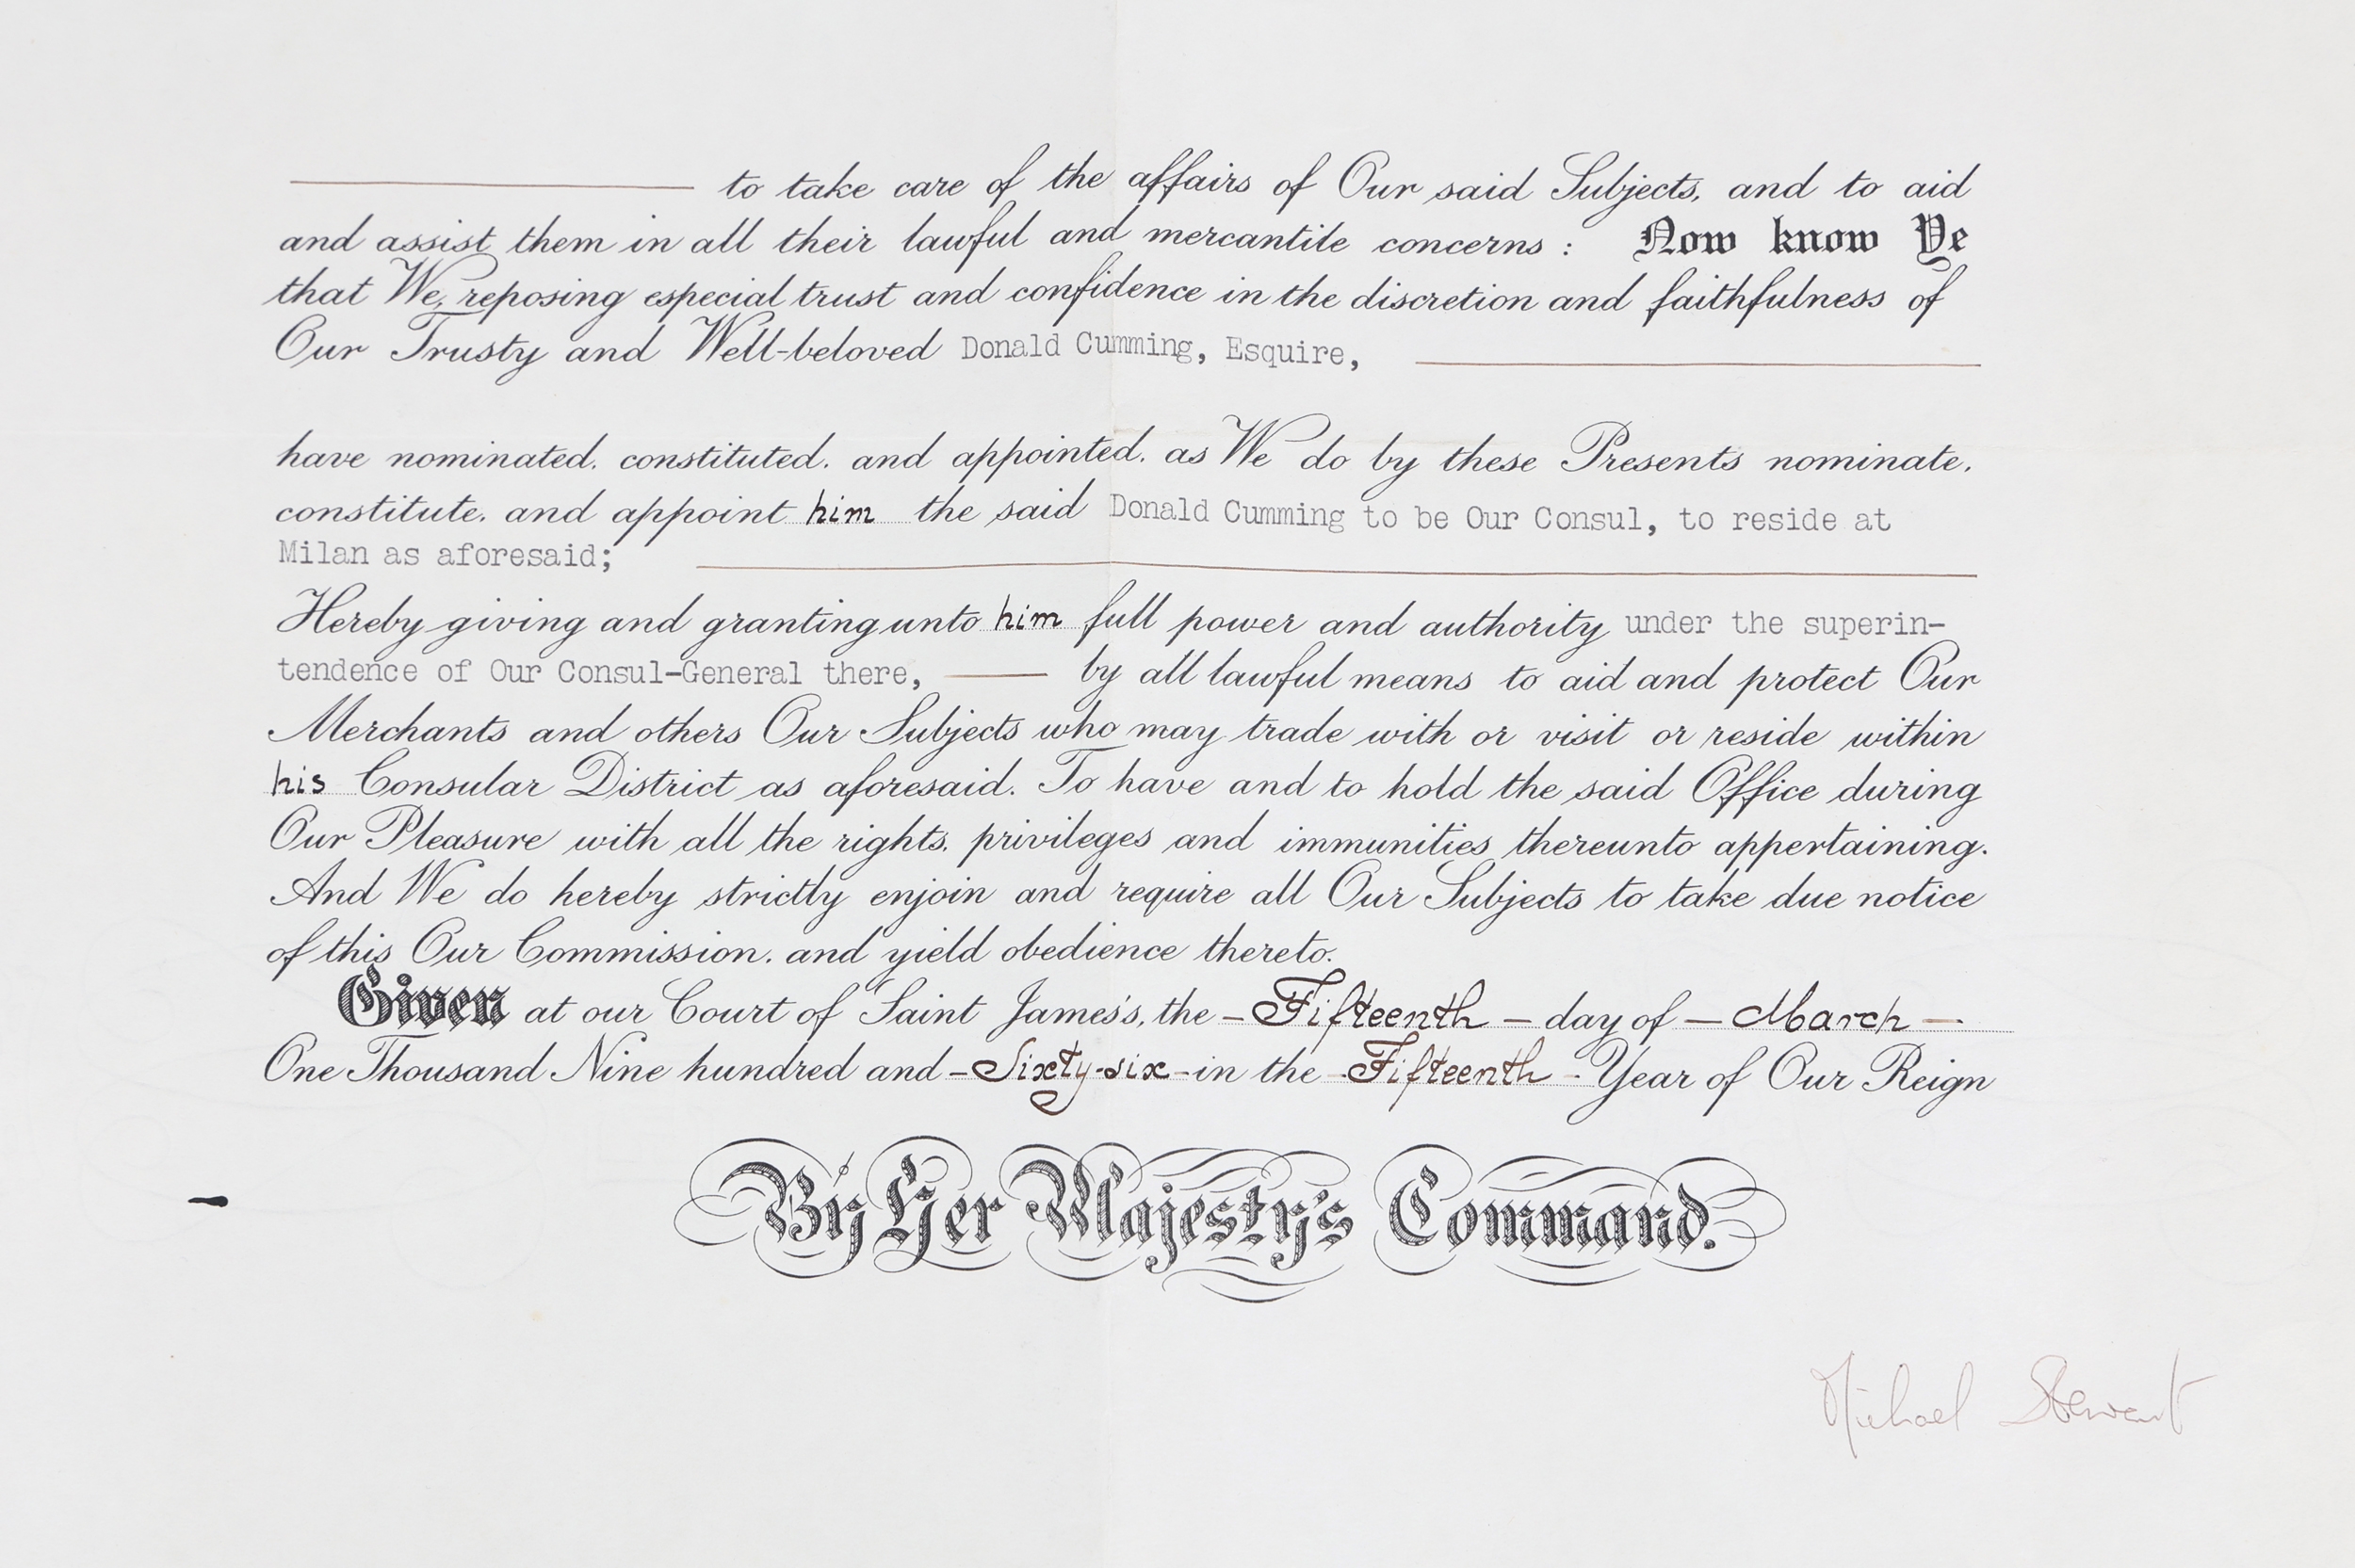 to take care of the affairs of Our said Subjects, and to aid
and assist them in all their lawful and mercantile concerns : Now know Ye
that We, reposing especial trust and confidence in the discretion and faithfulness of
Our Trusty and Well-beloved Donald Cumming, Esquire,
have nominated, constituted, and appointed, as We do by these Presents nominate,
constitute, and appoint him the said Donald Cumming to be Our Consul, to reside at
Milan as aforesaid;
Hereby giving and granting unto him full power and authority under the superin-
tendence of Our Consul-General there, by all lawful means to aid and protect Our
Merchants and others Our Subjects who may trade with or visit or reside within
his Consular District as aforesaid. To have and to hold the said Office during
Our Pleasure with all the rights, privileges and immunities thereunto appertaining.
And We do hereby strictly enjoin and require all Our Subjects to take due notice
of this Our Commission, and yield obedience thereto.
Given at our Court of Saint James's, the – Fifteenth – day of – March –
One Thousand Nine hundred and – Sixty-six – in the - Fifteenth - Year of Our Reign
By Her Majesty's Command.
Michael Stewart